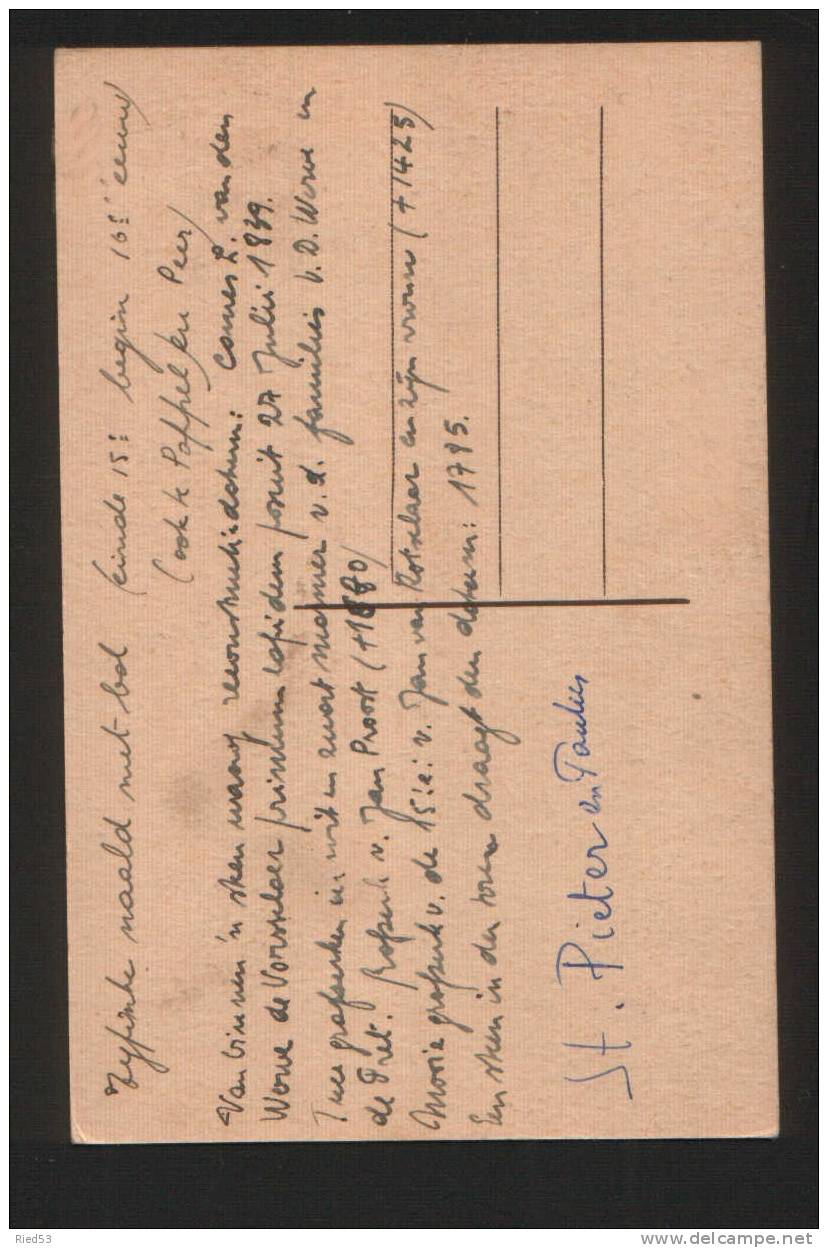 Typische naald met bol (einde 15e begin 16e eeuw)
(ook te Poppel en Peer)
Van binnen 'n steen waarop reconstructiedatum: Comes L. van den
Werve de Vorsselaer primum lapidem posuit 27 Julii 1839.
Twee grafzerken in wit en zwart marmer v.d. families v.D. Werve en
de Pret. Grafzerk v. Jan Proost (+1680)
Mooie grafzerk v. de 15ie: v. Jan van Rotselaer en zijn vrouw (+1425)
Een steen in den toren draagt den datum: 1795.
St. Pieter en Paulus
Ried53
www.delcampe.net